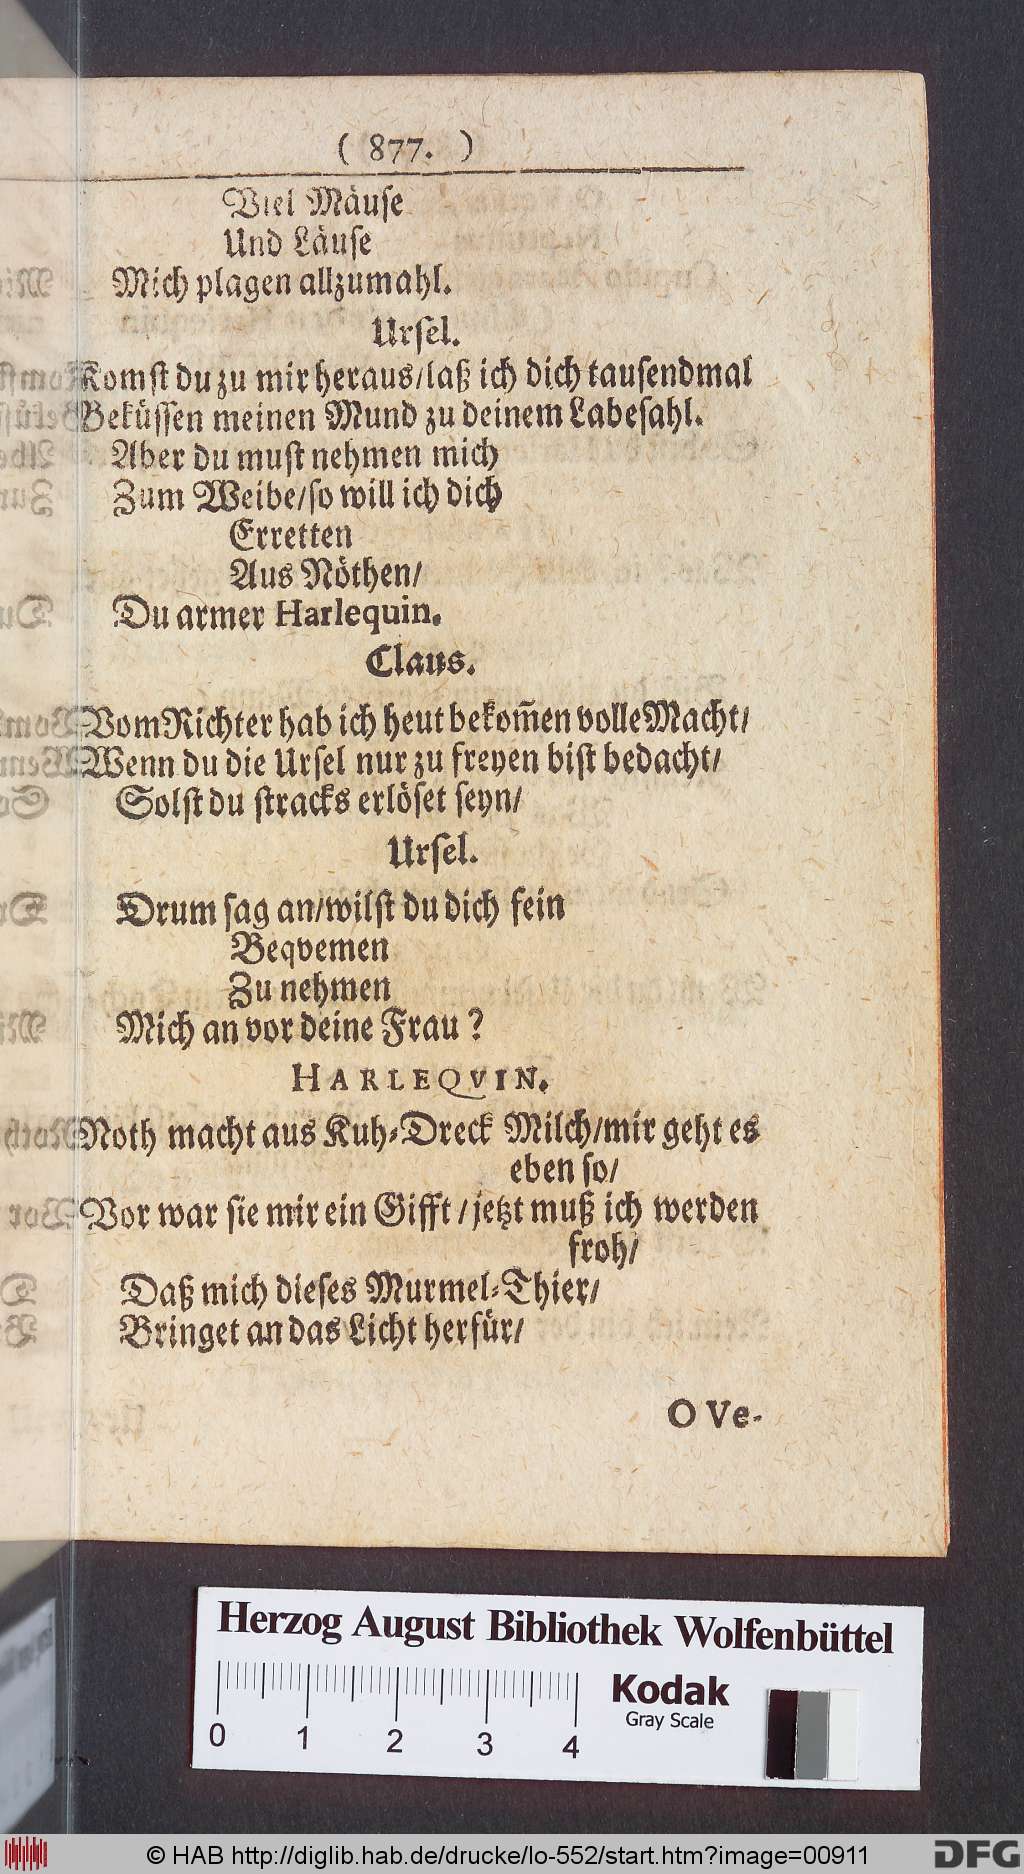 ( 877. )
Viel Mäuſe
Und Läuſe
Mich plagen allzumahl.
Urſel.
Komſt du zu mir heraus/laß ich dich tauſendmal
Beküſſen meinen Mund zu deinem Labeſahl.
Aber du muſt nehmen mich
Zum Weibe/ſo will ich dich
Erretten
Aus Nöthen/
Du armer Harlequin.
Claus.
Vom Richter hab ich heut bekom̃en volle Macht/
Wenn du die Urſel nur zu freyen biſt bedacht/
Solſt du ſtracks erlöſet ſeyn/
Urſel.
Drum ſag an/wilſt du dich fein
Beqvemen
Zu nehmen
Mich an vor deine Frau ?
HARLEQVIN.
Noth macht aus Kuh-Dreck Milch/mir geht es
eben ſo/
Vor war ſie mir ein Gifft / jetzt muß ich werden
froh/
Daß mich dieſes Murmel-Thier/
Bringet an das Licht herfür/
O Ve-
Herzog August Bibliothek Wolfenbüttel
Kodak
Gray Scale
0 1 2 3 4
© HAB http://diglib.hab.de/drucke/lo-552/start.htm?image=00911
DFG